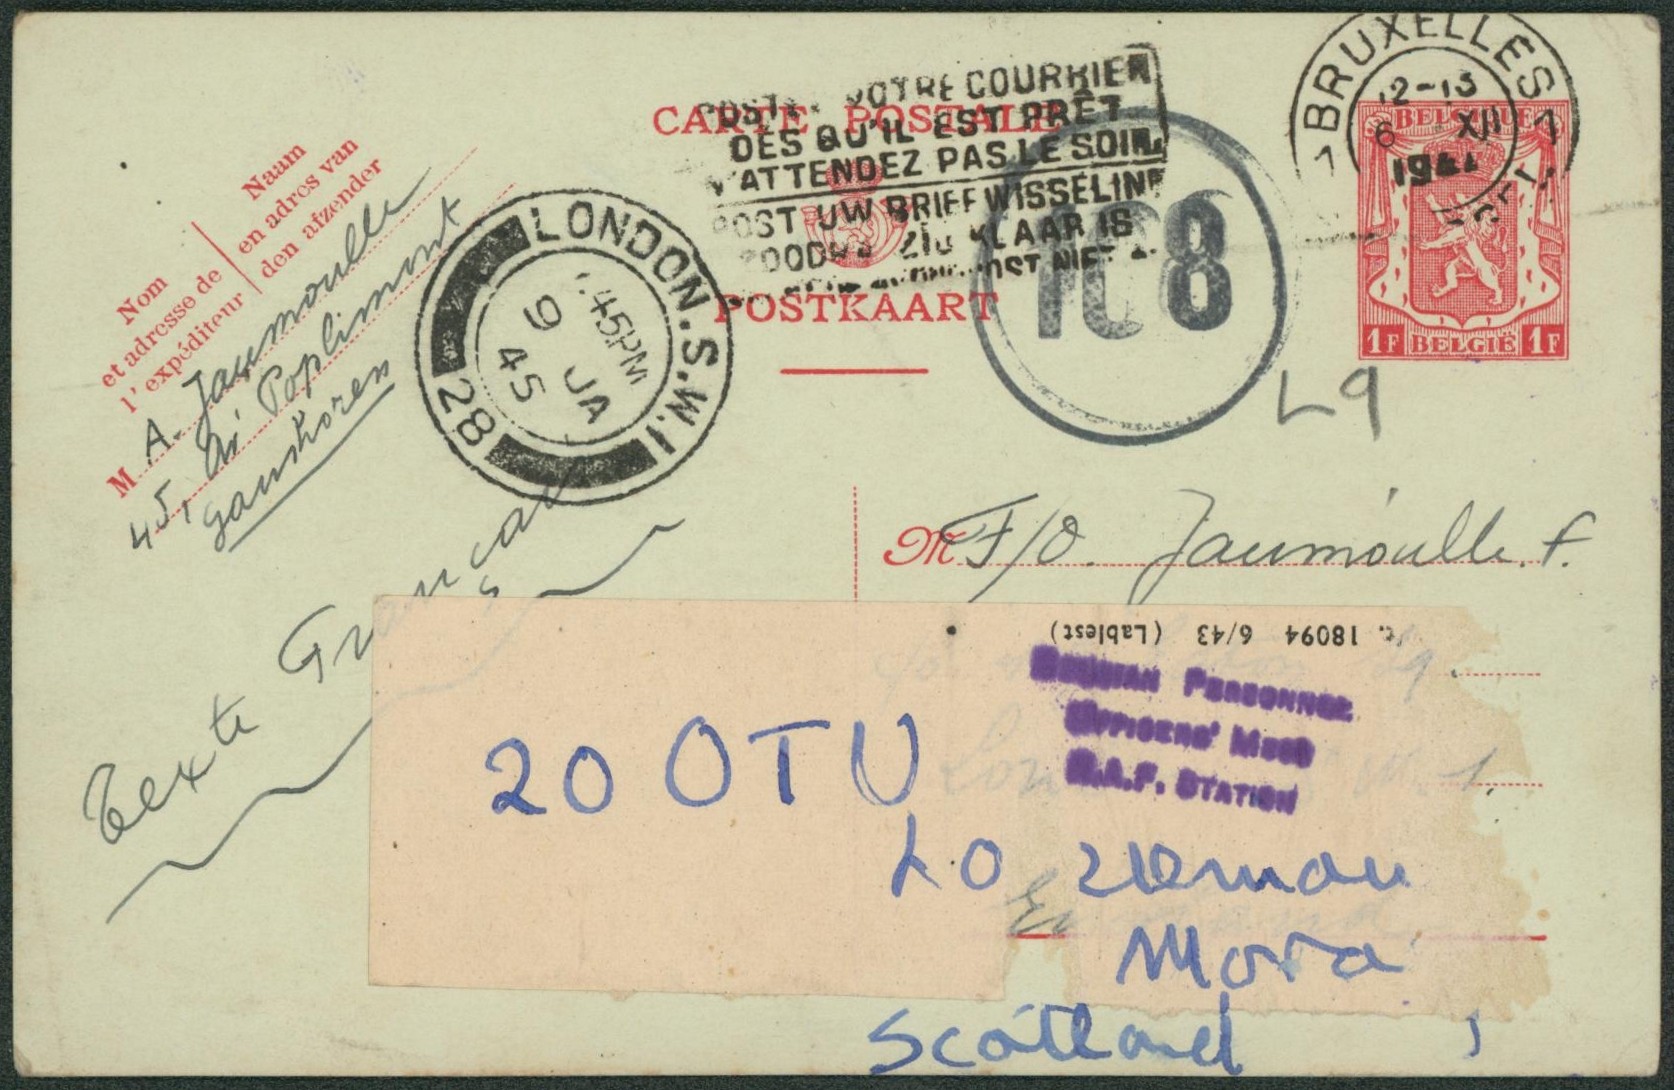 CARTE POSTALE
POSTKAART
Nom
et adresse de
l'expéditeur
Naam
en adres van
den afzender
M A. Jaumoulle
45, Poplimont
Ganshoren
Texte Français
VOTRE COURRIER
DÈS QU'IL EST PRÊT
N'ATTENDEZ PAS LE SOIR
POST UW BRIEFWISSELING
ZIJ KLAAR IS
POST NIET
BRUXELLES
12-13
6 XII
1944
BELGIQUE
1F BELGIË 1F
LONDON.S.W.1
.45PM
9 JA
45
28
1C8
L9
M F/O. Jaumoulle. F.
18094 6/43 (Lablest)
BELGIAN PERSONNEL
OFFICERS' MESS
R.A.F. STATION
20 OTU
Mora
Scotland